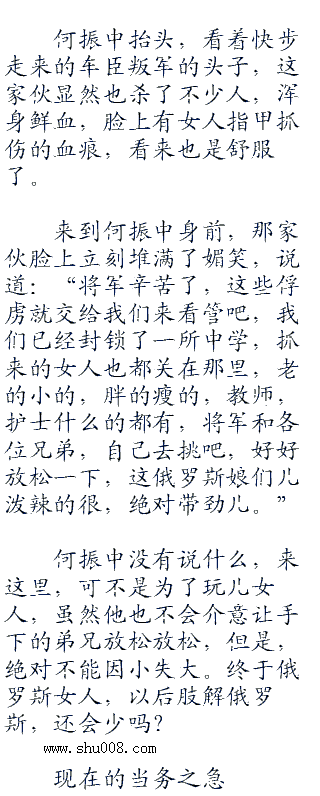 何振中抬头，看着快步
走来的车臣叛军的头子，这
家伙显然也杀了不少人，浑
身鲜血，脸上有女人指甲抓
伤的血痕，看来也是舒服
了。
来到何振中身前，那家
伙脸上立刻堆满了媚笑，说
道：“将军辛苦了，这些俘
虏就交给我们来看管吧，我
们已经封锁了一所中学，抓
来的女人也都关在那里，老
的小的，胖的瘦的，教师，
护士什么的都有，将军和各
位兄弟，自己去挑吧，好好
放松一下，这俄罗斯娘们儿
泼辣的很，绝对带劲儿。”
何振中没有说什么，来
这里，可不是为了玩儿女
人，虽然他也不会介意让手
下的弟兄放松放松，但是，
绝对不能因小失大。终于俄
罗斯女人，以后肢解俄罗
斯，还会少吗？
www.shu008.com
现在的当务之急